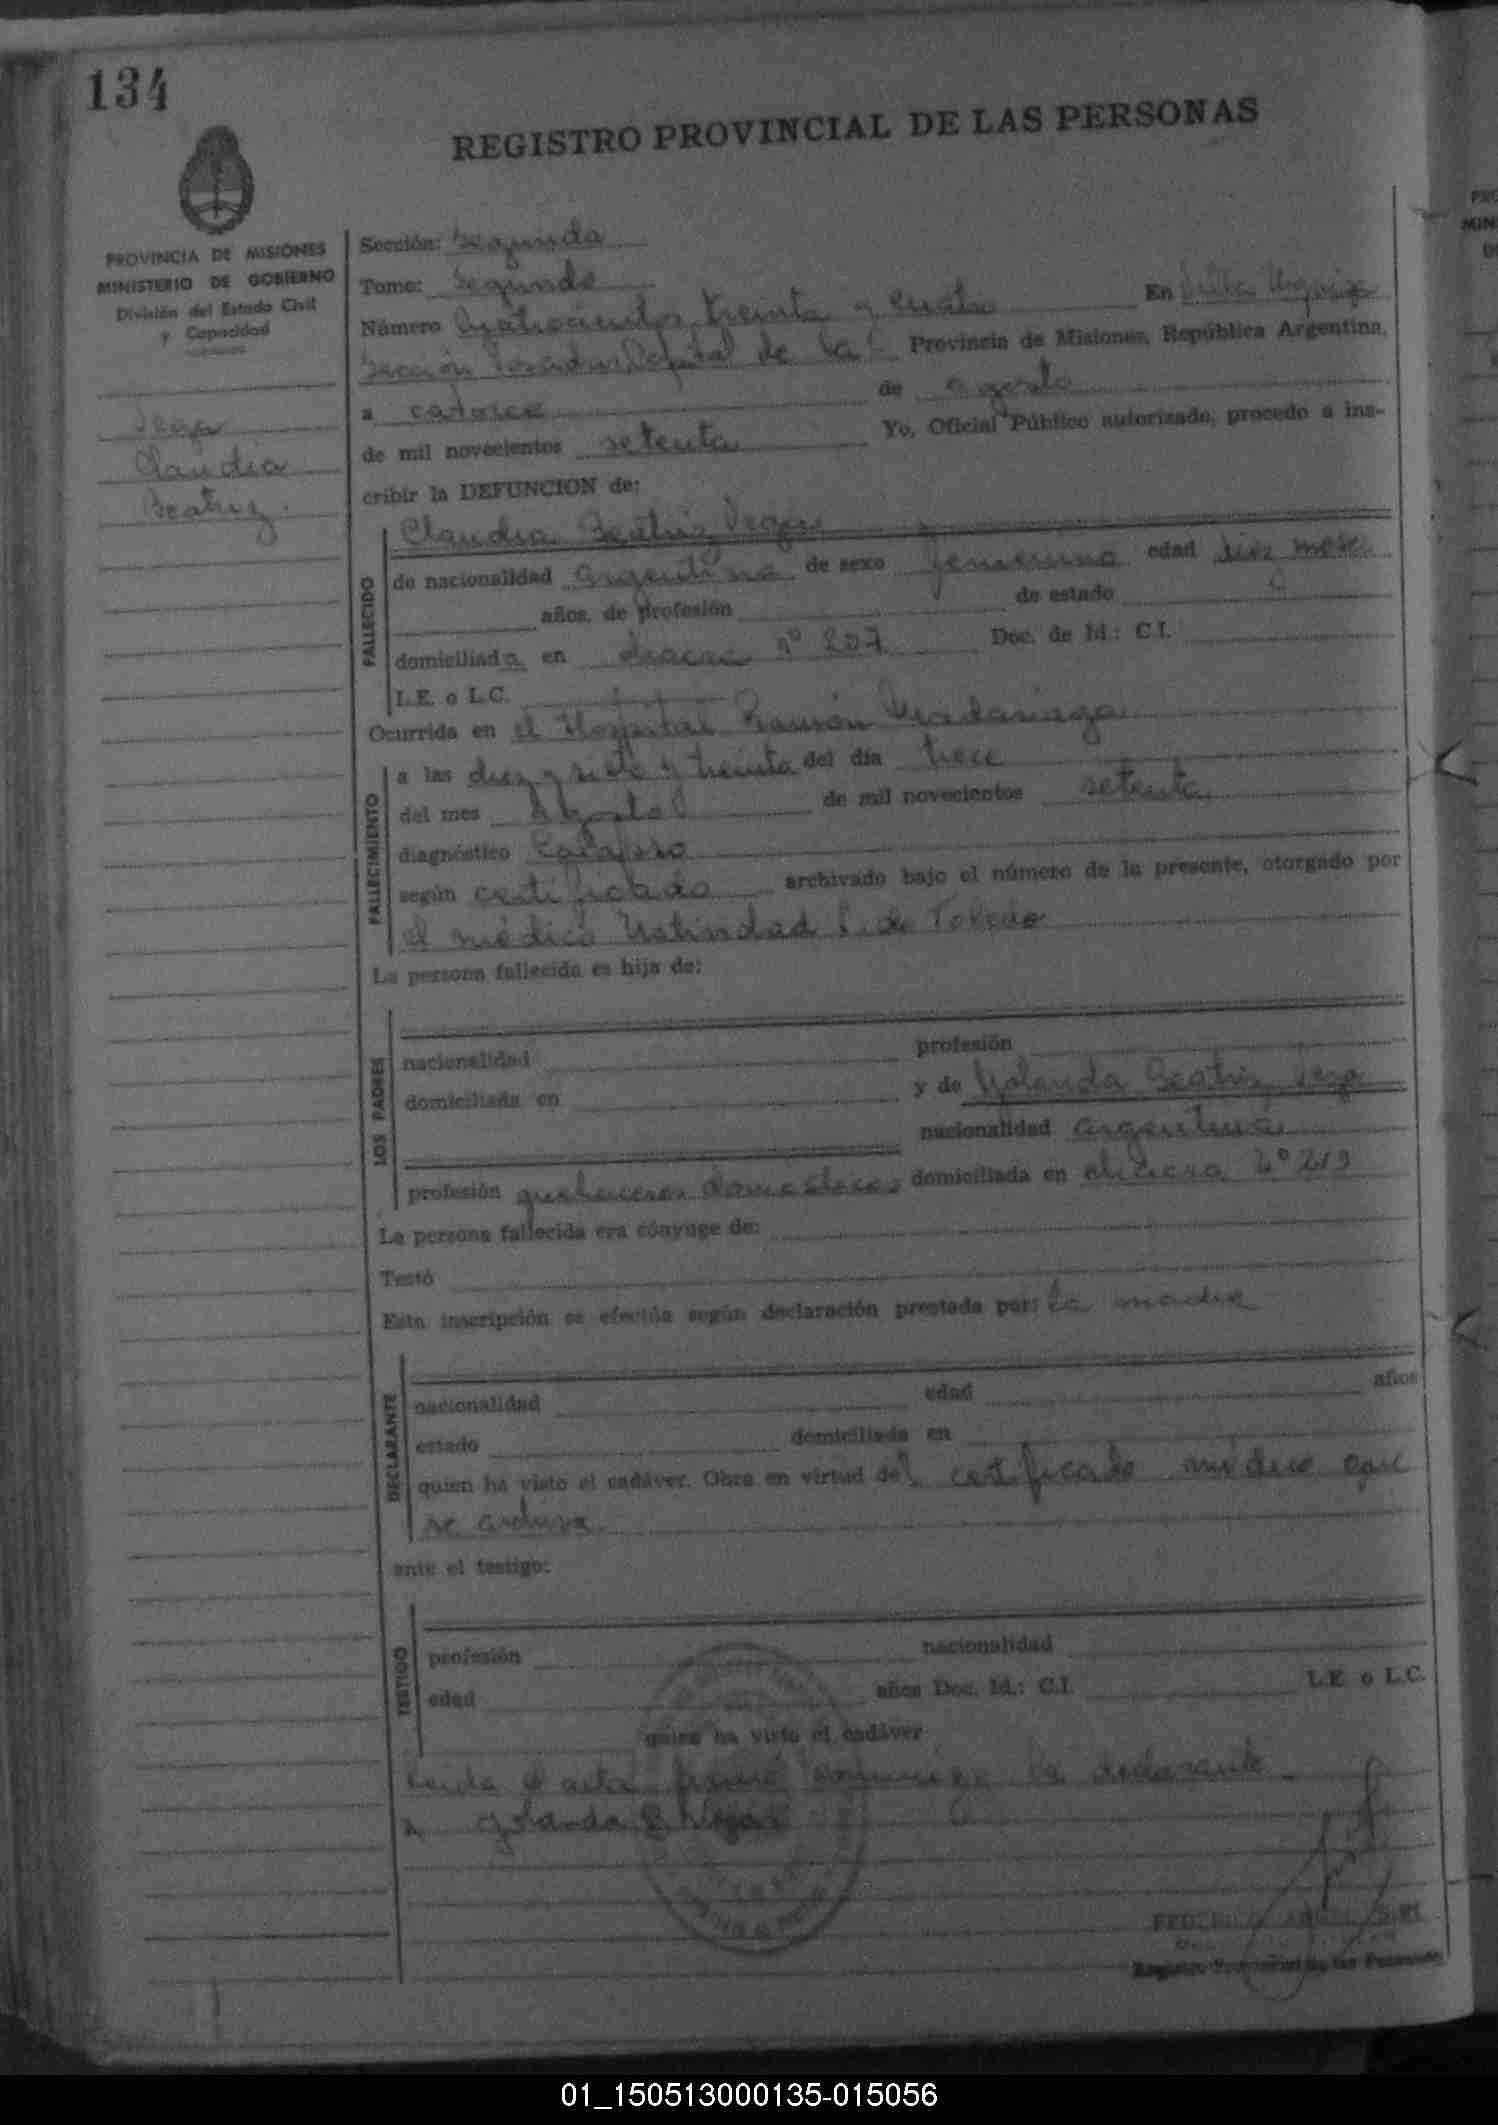 134
REGISTRO PROVINCIAL DE LAS PERSONAS
PROVINCIA DE MISIONES
MINISTERIO DE GOBIERNO
División del Estado Civil
y Capacidad
Vega
Claudia
Beatriz.
Sección: Segunda
Tomo: Segundo
Número Cuatrocientos treinta y cuatro En Villa Urquiza
Sección Posadas Capital de la Provincia de Misiones, República Argentina,
a catorce de agosto
de mil novecientos setenta Yo, Oficial Público autorizado, procedo a ins-
cribir la DEFUNCION de:
FALLECIDO
Claudia Beatriz Vega
de nacionalidad argentina de sexo femenino edad
años, de profesión de estado
domiciliada en nº 207 Doc. de Id.: C.I.
L.E. o L.C.
Ocurrida en el Hospital Ramón Madariaga
FALLECIMIENTO
a las diez y siete y treinta del día trece
del mes Agosto de mil novecientos setenta
diagnóstico Colapso
según certificado archivado bajo el número de la presente, otorgado por
el médico Natividad de Toledo
La persona fallecida es hija de:
LOS PADRES
nacionalidad profesión
domiciliada en y de Yolanda Beatriz Vega
nacionalidad argentina
profesión quehaceres domesticos domiciliada en Nº 219
La persona fallecida era cónyuge de:
Testó
Esta inscripción se efectúa según declaración prestada por: la madre
DECLARANTE
nacionalidad edad años
estado domiciliada en
quien ha visto el cadáver. Obra en virtud del certificado médico que
se archiva.
ante el testigo:
TESTIGO
profesión nacionalidad
edad años Doc. Id.: C.I. L.E. o L.C.
quien ha visto el cadáver
Leida el acta firma conmigo la declarante
Yolanda B Vega
Registro Provincial de las Personas
01_150513000135-015056